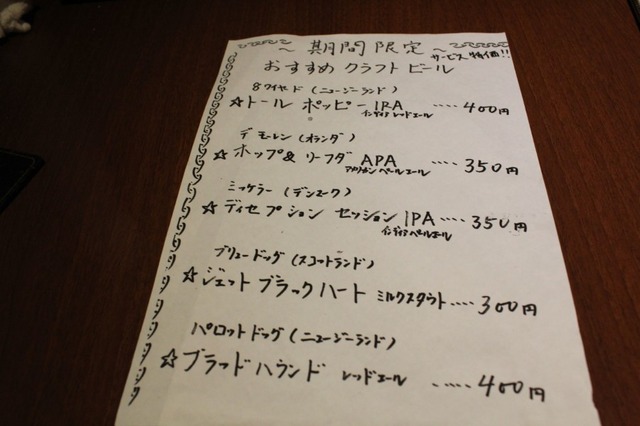 ～ 期間限定 ～
サービス特価!!
おすすめ クラフト ビール
8ワイヤード (ニュージーランド)
☆トール ポッピー IRA ‥‥ 400円
インディア レッドエール
デ モーレン (オランダ)
☆ ホップ& リーフダ APA ‥‥ 350円
アメリカン ペールエール
ミッケラー (デンマーク)
☆ ディセプション セッション IPA ‥‥ 350円
インディアペールエール
ブリュードッグ (スコットランド)
☆ ジェット ブラック ハート ミルクスタウト ‥‥ 300円
パロットドッグ (ニュージーランド)
☆ ブラッドハウンド レッドエール ‥‥ 400円